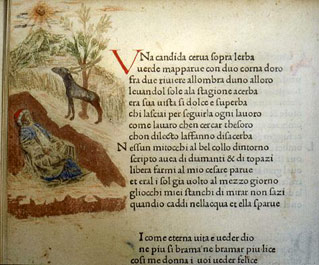 VNa candida cerua sopra lerba
uerde mapparue con duo corna doro
fra due riuiere allombra duno alloro
leuandol sole ala stagione acerba
era sua uista si dolce e superba
chi lasciai per seguirla ogni lauoro
come lauaro chen cercar thesoro
chon dilecto laffanno disacerba
Nessun mitocchi al bel collo dintorno
scripto auea di diamanti & di topazi
libera farmi al mio cesare parue
et eral sol gia uolto al mezzo giorno
gliocchi miei stanchi di mirar non sazi
quandio caddi nellacqua et ella sparue
Icome eterna uita e ueder dio
ne piu si brama ne bramar piu lice
cosi me donna i uoi ueder felice